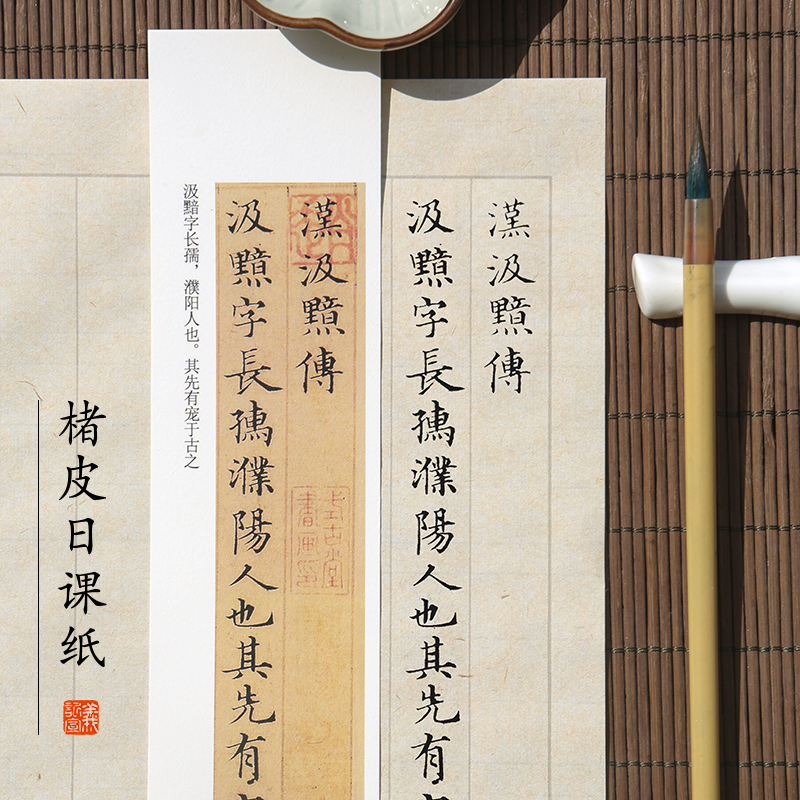 漢汲黯傳
汲黯字長孺濮陽人也其先有
漢汲黯傳
汲黯字長孺濮陽人也其先有
汲黯字长孺，濮阳人也。其先有宠于古之
楮皮日课纸